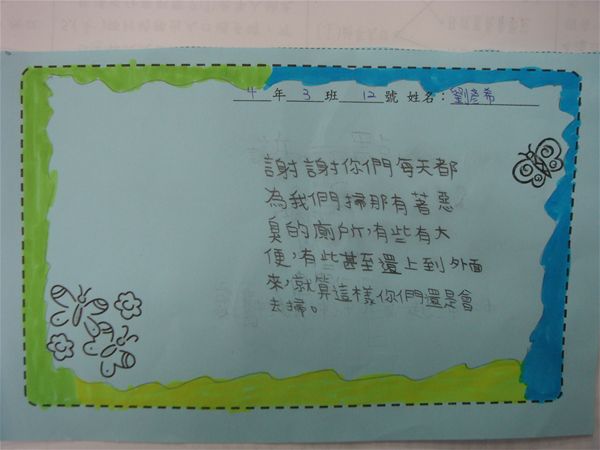 4年3班12號 姓名：劉彥希
謝謝你們每天都
為我們掃那有著惡
臭的廁所，有些有大
便，有些甚至還上到外面
來，就算這樣你們還是會
去掃。